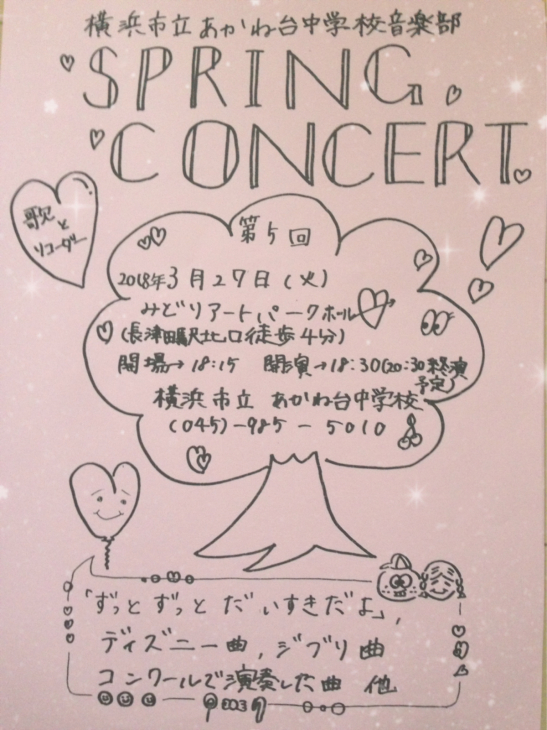 横浜市立あかね台中学校音楽部
SPRING
CONCERT
歌と
リコーダー
第5回
2018年3月27日(火)
みどりアートパークホール
(長津田駅北口徒歩4分)
開場→18:15 開演→18:30(20:30終演
予定)
横浜市立 あかね台中学校
(045)-985-5010
「ずっとずっとだいすきだよ」,
ディズニー曲,ジブリ曲
コンクールで演奏した曲 他